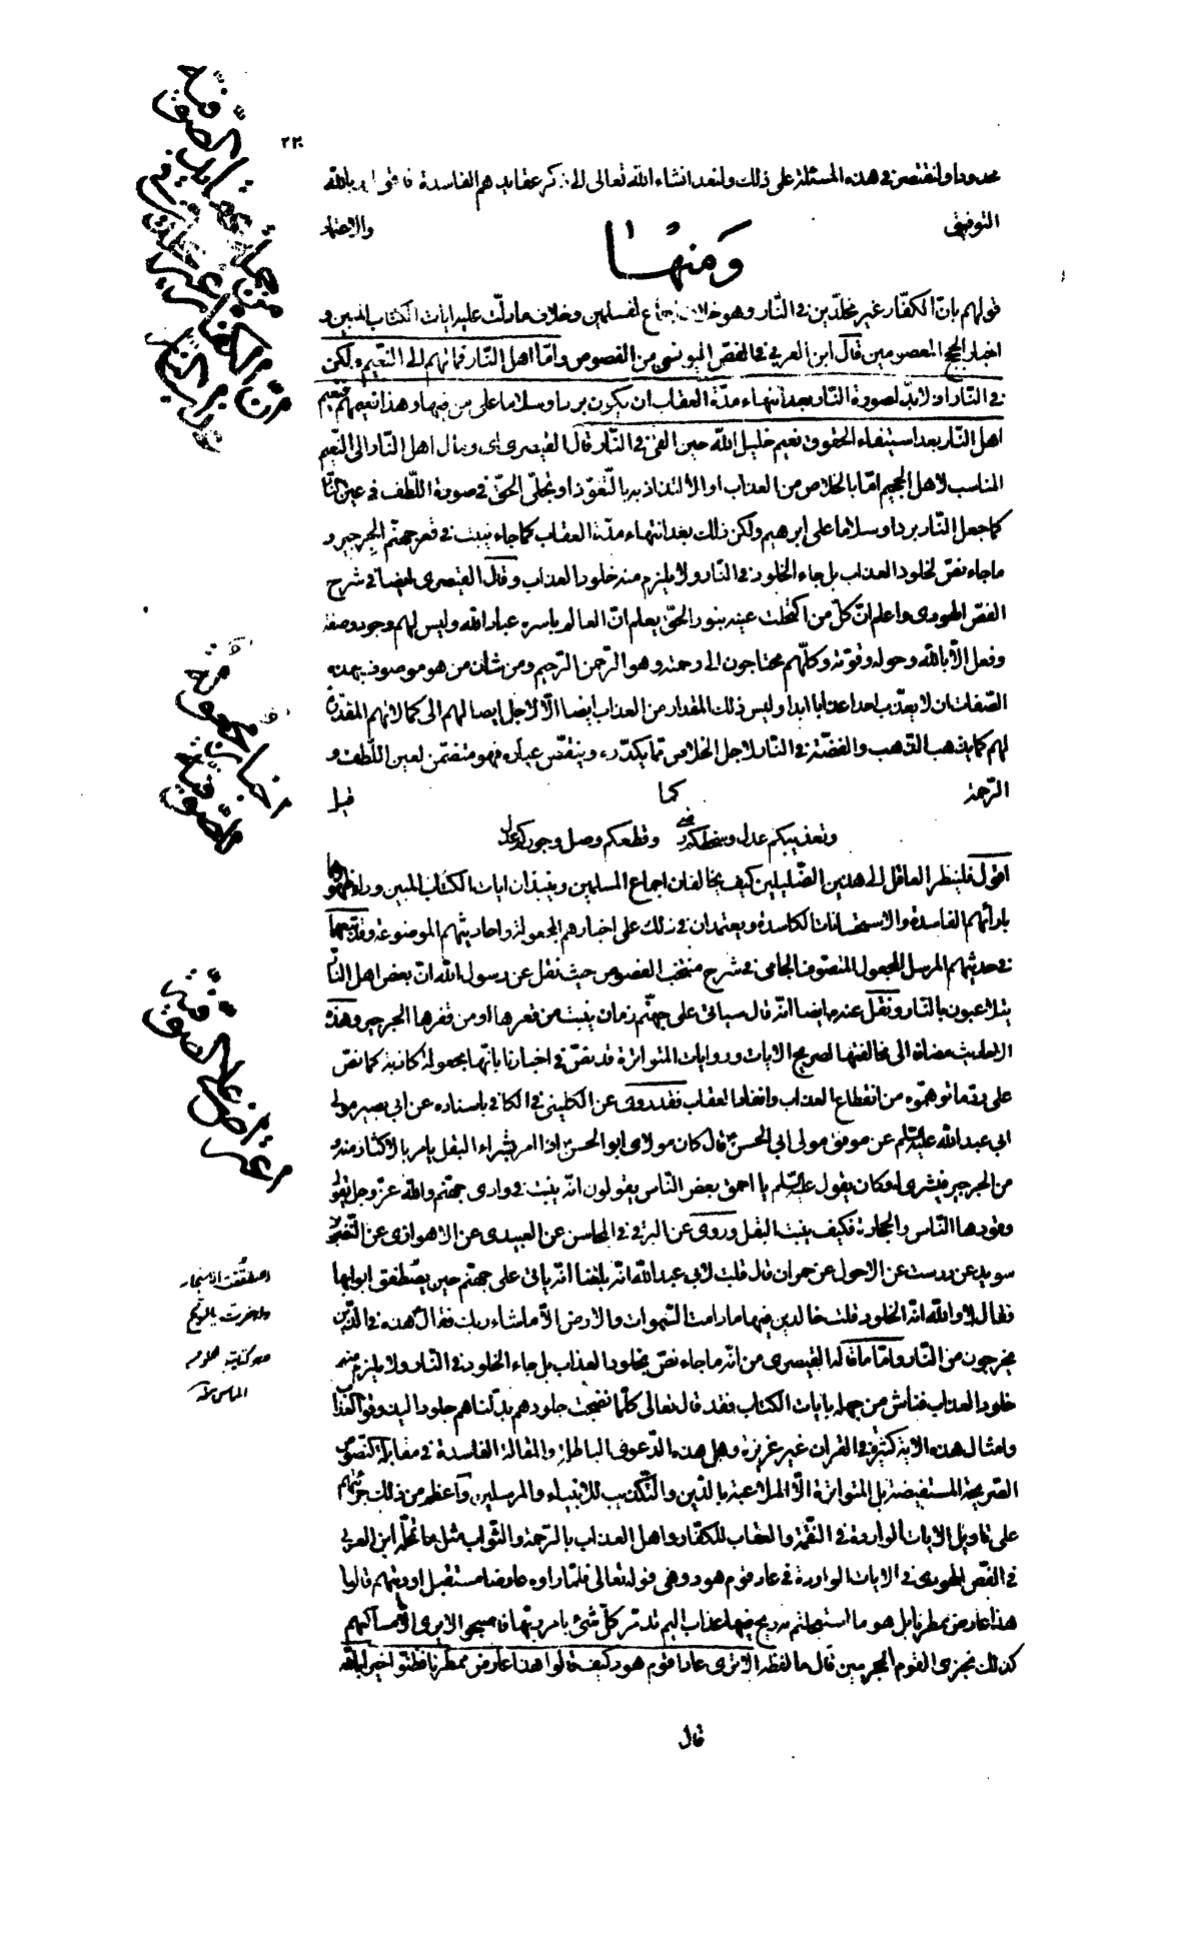 ٢٢٠
محدودا ولنقتصر في هذه المسئلة على ذلك ولنعد انشاء الله تعالى الى ذكر عقايدهم الفاسدة فاقول وبالله
التوفيق والاعتماد
ومنها
قولهم بان الكفار غير مخلدين في النار وهو خلاف اجماع المسلمين وخلاف ما دلت عليه ايات الكتاب المبين و
اخبار الحجج المعصومين قال ابن العربي في الفص اليونسي من الفصوص واما اهل النار فمالهم الى النعيم ولكن
في النار اذ لا بد لصورة النار بعد انتهاء مدة العقاب ان يكون بردا وسلاما على من فيها وهذا نعيمهم فنعيم
اهل النار بعد استيفاء الحقوق نعيم خليل الله حين القي في النار قال القيصري اى ومال اهل النار الى النعيم
المناسب لاهل الجحيم اما بالخلاص من العذاب او الالتذاذ به بالتعوذ او تجلى الحق في صورة اللطف في عين النار
كما جعل النار بردا وسلاما على ابرهيم ولكن ذلك بعد انتهاء مدة العقاب كما جاء ينبت في قعر جهنم الجرجير و
ما جاء نص بخلود العذاب بل جاء الخلود في النار ولا يلزم منه خلود العذاب وقال القيصرى ايضا في شرح
الفص الهودى واعلم ان كل من اكتحلت عينه بنور الحق يعلم ان العالم باسره عباد الله وليس لهم وجود وصفة
وفعل الا بالله وحوله وقوته وكلهم محتاجون الى رحمته وهو الرحمن الرحيم ومن شان من هو موصوف بهذه
الصفات ان لا يعذب احدا عذابا ابدا وليس ذلك المقدار من العذاب ايضا الا لاجل ايصالهم الى كمالاتهم المقدرة
لهم كما يذهب الذهب والفضة في النار لاجل الخلاص مما يكدره وينقص عياره فهو متضمن لعين اللطف و
الرحمة كما قيل
وتعذيبكم عدل وسخطكم رضى وقطعكم وصل وجوركم عدل
اقول فلينظر العاقل الى هذين الضليلين كيف يخالفان اجماع المسلمين وينبذان ايات الكتاب المبين وراء ظهورهما
بارائهم الفاسدة والاستحسانات الكاسدة ويعتمدان في ذلك على اخبارهم المجعولة واحاديثهم الموضوعة وقد تبعهما
في حديثهم المرسل المجعول المتصوف الجامى في شرح منتخب الفصوص حيث نقل عن رسول الله ان بعض اهل النار
يتلاعبون بالنار ونقل عنه ايضا انه قال سياتى على جهنم زمان ينبت من قعرها الجرجير وهذه
الاحاديث مضافة الى مخالفتها لصريح الايات وروايات المتواترة قد نص في اخبارنا بانها مجعولة كاذبة كما نص
على رد ما توهموه من انقطاع العذاب وانقضاء العقاب فقد روى عن الكليني في الكافي باسناده عن ابي بصير مولى
ابي عبد الله عليه السلام عن موفق مولى ابي الحسن ع قال كان مولاى ابو الحسن ع اذا امر بشراء البقل يامر بالاكثار منه و
من الجرجير فيشرى له وكان يقول عليه السلام ما احمق بعض الناس يقولون انه ينبت في وادى جهنم والله عز وجل يقول
وقودها الناس والحجارة فكيف ينبت البقل وروى عن البرقي في المحاسن عن العبيدى عن الاهوازى عن النضر بن
سويد عن درست عن الاحول عن حمران قال قلت لابي عبد الله انه بلغنا انه ياتى على جهنم حين يصطفق ابوابها
فقال لا والله انه الخلود قلت خالدين فيها ما دامت السموات والارض الا ما شاء ربك فقال هذه في الذين
يخرجون من النار واما ما قاله القيصرى من انه ما جاء نص بخلود العذاب بل جاء الخلود في النار ولا يلزم منه
خلود العذاب فناش من جهله بايات الكتاب فقد قال تعالى كلما نضجت جلودهم بدلناهم جلودا ليذوقوا العذاب
وامثال هذه الاية كثيرة في القران غير عزيزة وهل هذه الدعوى الباطلة والمقالة الفاسدة في مقابلة النصوص
الصريحة المستفيضة بل المتواترة الا الملاعبة بالدين والتكذيب للانبياء والمرسلين واعظم من ذلك جرئتهم
على تاويل الايات الواردة في النقمة والعقاب للكفار واهل العذاب بالرحمة والثواب مثل ما تمحله ابن العربي
في الفص الهودى في الايات الواردة في عاد قوم هود وهي قوله تعالى فلما راوه عارضا مستقبل اوديتهم قالوا
هذا عارض ممطرنا بل هو ما استعجلتم به ريح فيها عذاب اليم تدمر كل شئ بامر ربها فاصبحوا لا يرى الا مساكنهم
كذلك نجزى القوم المجرمين قال ما لفظه الا ترى عادا قوم هود كيف قالوا هذا عارض ممطرنا فظنوا خيرا بالله
قال
من جملة عقايد الصوفية
ان الكفار غير مخلدين
اخبار مجعولة
للصوفية
اعتراض على الصوفية
اصطفقت الاشجار
اهتزت بالريح